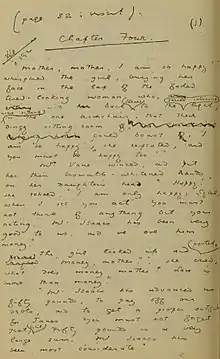 (page 52: insert)
(1)
Chapter Four.
"Mother, mother, I am so happy,"
whispered the girl, burying her
face in the lap of the faded
tired-looking woman who, with
her back
one arm-chair that their
dingy sitting-room
could boast of. "I
am so happy," she repeated, "and
you must be happy too."
Mrs Vane winced, and put
her thin bismuth-whitened hands
on her daughter's head. "Happy,"
she echoed, "I am only happy, Sibyl,
when I see you act. You must
not think of anything but your
acting. Mr Isaacs has been very
good to us, and we owe him
money."
The girl looked up and pouted.
"Money, mother," she cried,
"what does money matter? Love is
more than money."
"Mr Isaacs has advanced us
fifty pounds, to pay off our
debts and to get a proper outfit
for James. You must not forget
that. Fifty pounds is a very
large sum. Mr Isaacs has
been most considerate."